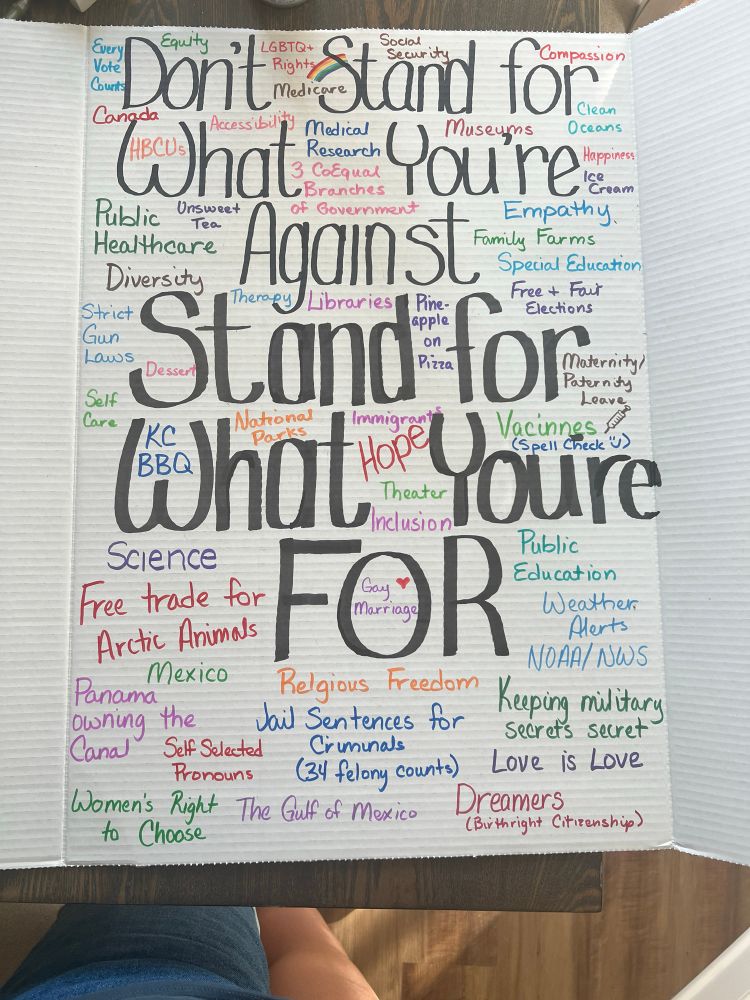 Every
Vote
Counts
Equity
LGBTQ+
Rights
Social
Security
Compassion
Don't Stand for
Medicare
Clean
Oceans
Canada
Accessibility
Medical
Research
Museums
HBCUs
What You're
Happiness
3 CoEqual
Branches
of Government
Ice
Cream
Public
Healthcare
Unsweet
Tea
Empathy
Against
Family Farms
Diversity
Special Education
Therapy
Libraries
Pine-
apple
on
Pizza
Free + Fair
Elections
Strict
Gun
Laws
Stand for
Dessert
Maternity/
Paternity
Leave
Self
Care
KC
BBQ
National
Parks
Immigrants
Hope
Vacinnes
(Spell Check Ü)
What You're
Theater
Inclusion
Science
FOR
Gay
Marriage
Public
Education
Free trade for
Arctic Animals
Weather
Alerts
NOAA/NWS
Mexico
Relgious Freedom
Panama
owning the
Canal
Keeping military
secrets secret
Jail Sentences for
Criumnals
(34 felony counts)
Self Selected
Pronouns
Love is Love
Women's Right
to Choose
The Gulf of Mexico
Dreamers
(Birthright Citizenship)